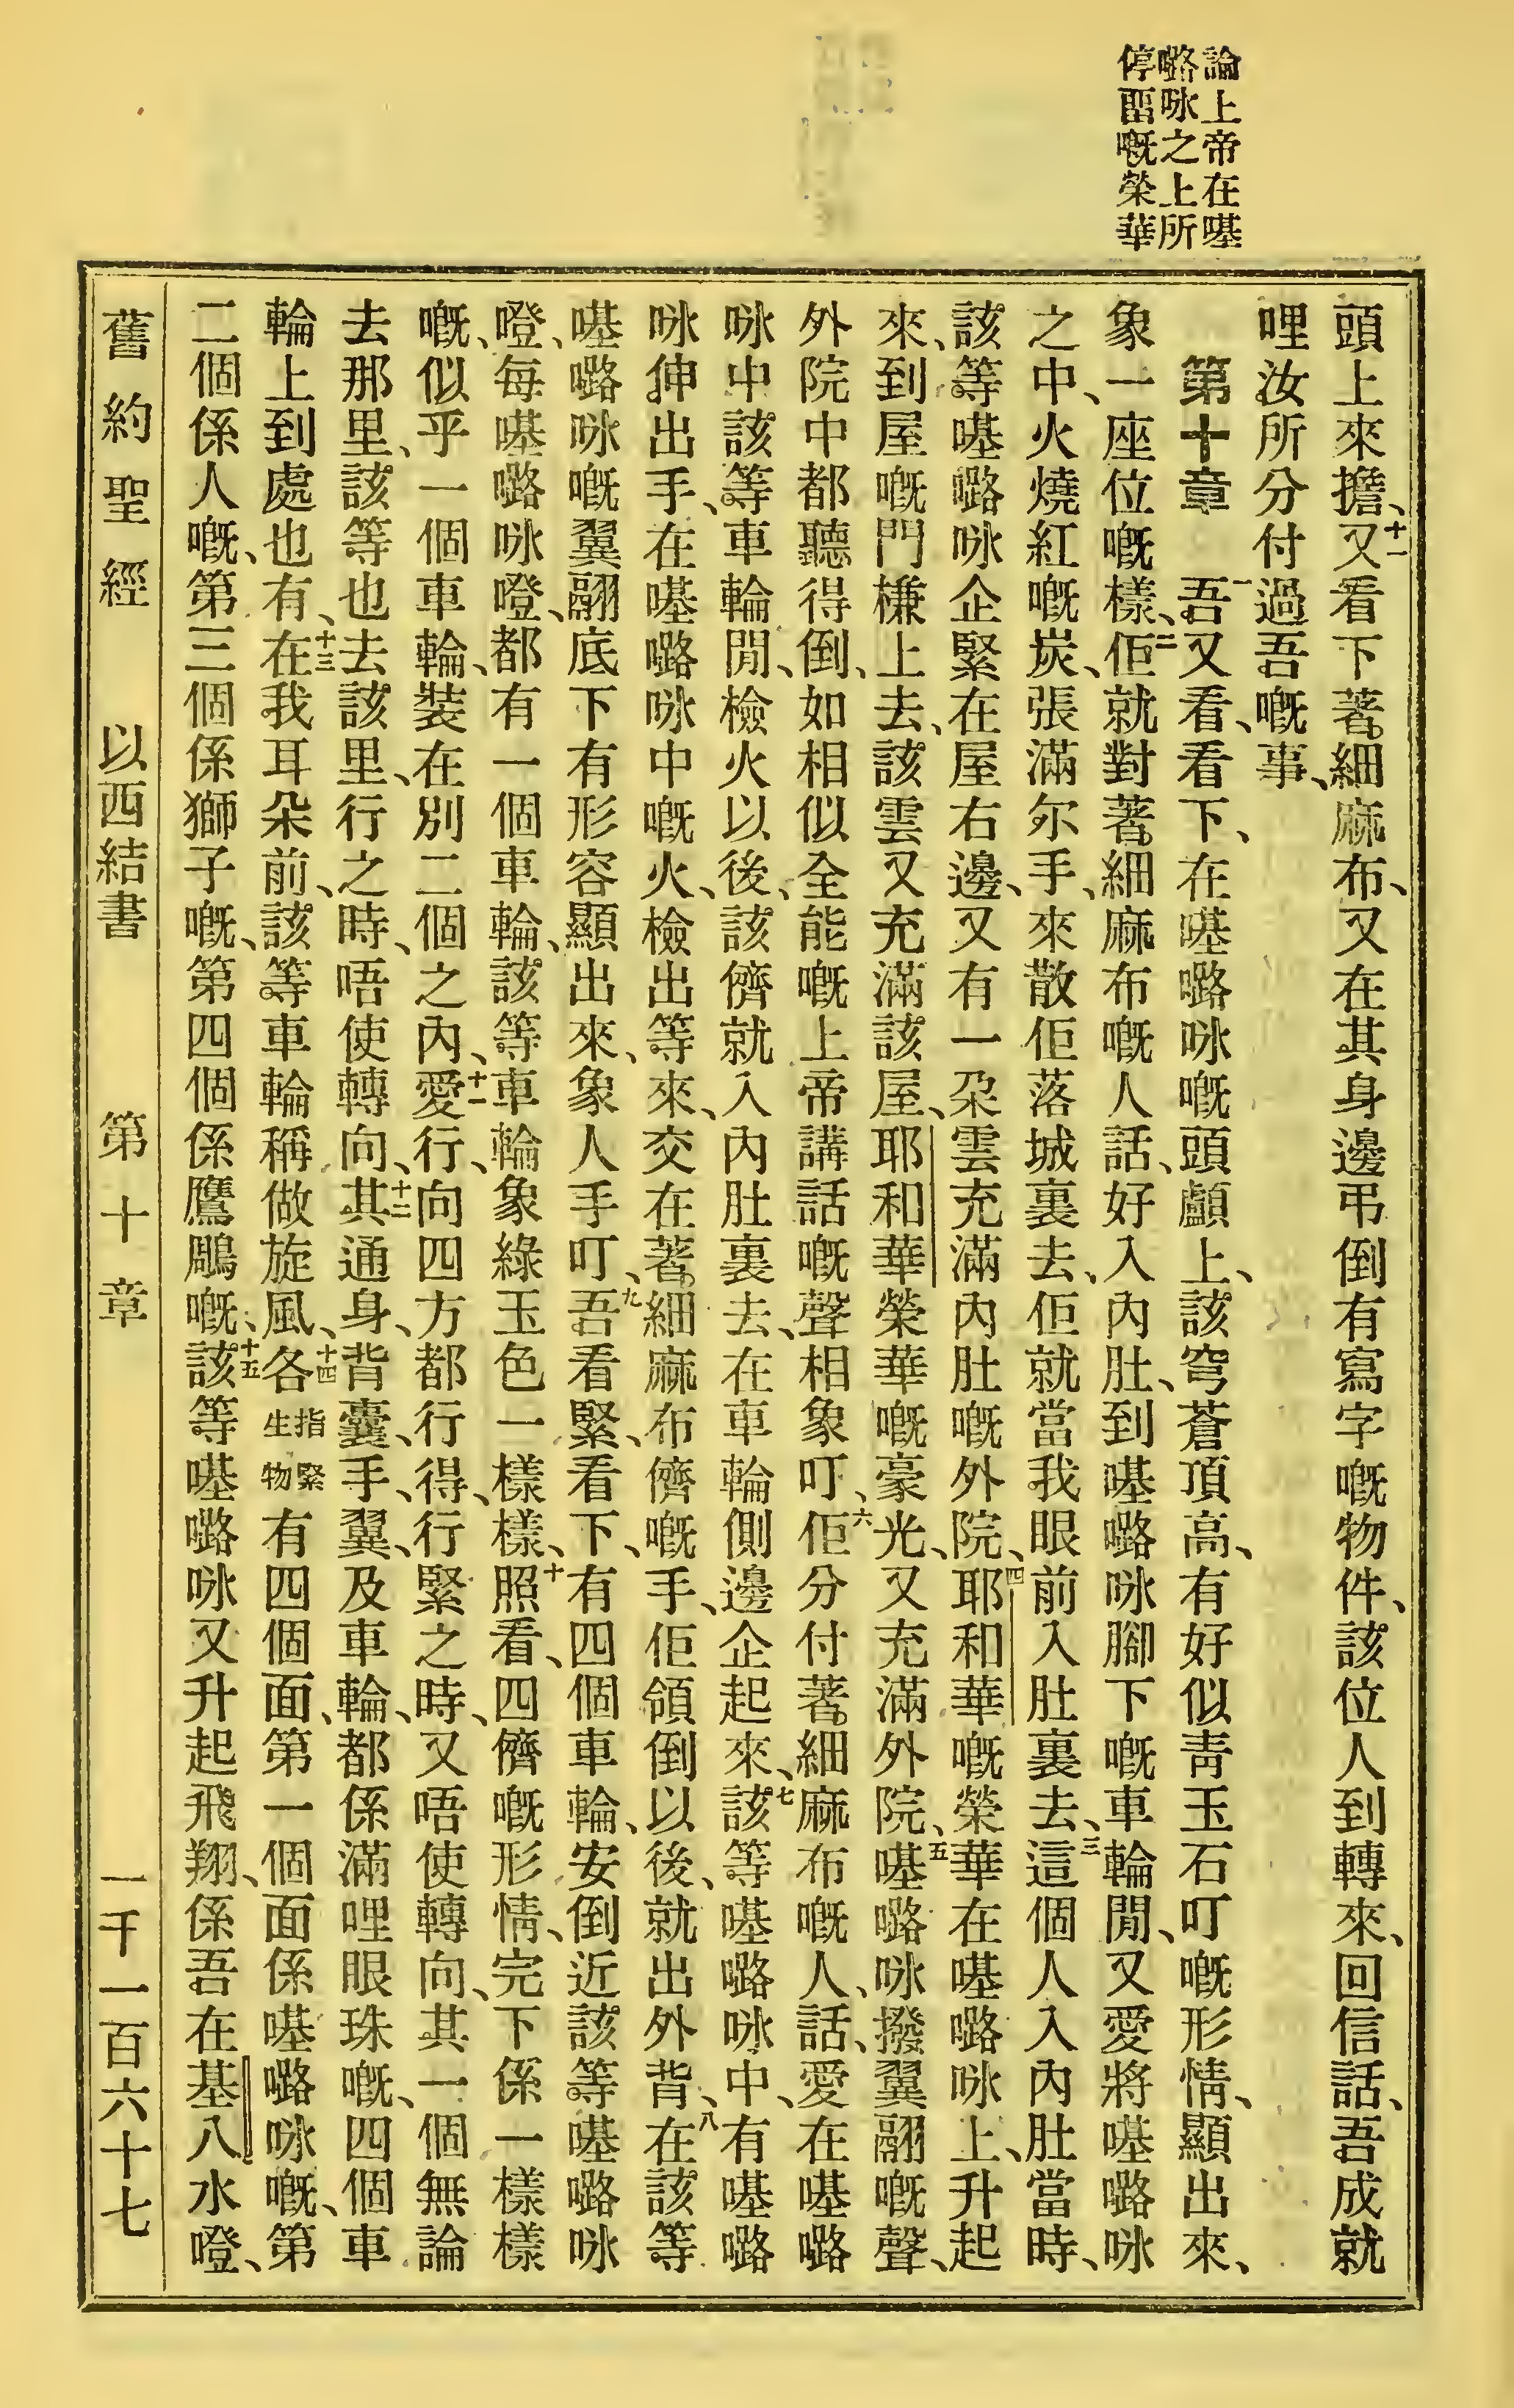 論上帝在𡀔
嚕咏之上所
停畱嘅榮華
頭上來擔、十一又看下著細麻布、又在其身邊弔倒有寫字嘅物件、該位人到轉來、回信話、吾成就
哩汝所分付過吾嘅事、
第十章　一吾又看、看下、在𡀔嚕咏嘅頭顱上、該穹蒼頂高、有好似靑玉石叮嘅形情、顯出來、
象一座位嘅樣、二佢就對著細麻布嘅人話、好入內肚、到𡀔嚕咏腳下嘅車輪閒、又愛將𡀔嚕咏
之中、火燒紅嘅炭、張滿尔手、來散佢落城裏去、佢就當我眼前入肚裏去、三這個人入內肚當時、
該等𡀔嚕咏企緊在屋右邊、又有一朶雲充滿內肚嘅外院、四耶和華嘅榮華在𡀔嚕咏上、升起
來、到屋嘅門槏上去、該雲又充滿該屋、耶和華榮華嘅豪光、又充滿外院、五𡀔嚕咏撥翼翮嘅聲、
外院中都聽得倒、如相似全能嘅上帝講話嘅聲相象叮、六佢分付著細麻布嘅人、話、愛在𡀔嚕
咏中該等車輪閒、檢火以後、該儕就入內肚裏去、在車輪側邊企起來、七該等𡀔嚕咏中、有𡀔嚕
咏伸出手、在𡀔嚕咏中嘅火、檢出等來、交在著細麻布儕嘅手、佢領倒以後、就出外背、八在該等
𡀔嚕咏嘅翼翮底下有形容顯出來、象人手叮、九吾看緊、看下、有四個車輪、安倒近該等𡀔嚕咏
噔、每𡀔嚕咏噔、都有一個車輪、該等車輪象綠玉色一樣樣、十照看、四儕嘅形情、完下係一樣樣
嘅、似乎一個車輪、裝在別二個之內、十一愛行、向四方都行得、行緊之時、又唔使轉向、其一個無論
去那里、該等也去該里、行之時、唔使轉向、十二其通身、背囊、手、翼、及車輪、都係滿哩眼珠嘅、四個車
輪上到處也有、十三在我耳朵前、該等車輪稱做旋風、十四各指緊生物有四個面、第一個面係𡀔嚕咏嘅、第
二個係人嘅、第三個係獅子嘅、第四個係鷹鵰嘅、十五該等𡀔嚕咏又升起飛翔、係吾在基八水噔、
舊約聖經　以西結書　第十章　一千一百六十七